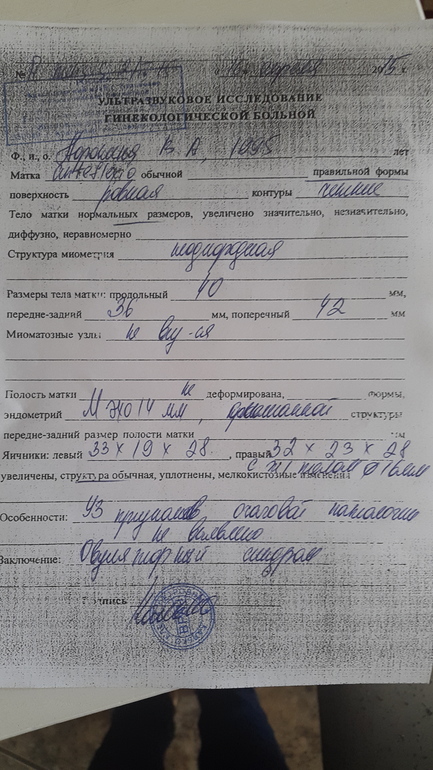 №
УЛЬТРАЗВУКОВОЕ ИССЛЕДОВАНИЕ
ГИНЕКОЛОГИЧЕСКОЙ БОЛЬНОЙ
Ф., и., о. В. А, 1995 лет
Матка обычной правильной формы
поверхность ровная контуры четкие
Тело матки нормальных размеров, увеличено значительно, незначительно,
диффузно, неравномерно
Структура миометрия однородная
Размеры тела матки: продольный 40 мм,
передне-задний 36 мм, поперечный 42 мм
Миоматозные узлы не
Полость матки не деформирована, формы,
эндометрий М эхо 14 мм, структуры
передне-задний размер полости матки мм
Яичники: левый 33 × 19 × 28, правый 32 × 23 × 28
увеличены, структура обычная, уплотнены, мелкокистозные изменения
Особенности: УЗ признаков очаговой патологии
не выявлено
Заключение: синдром
подпись